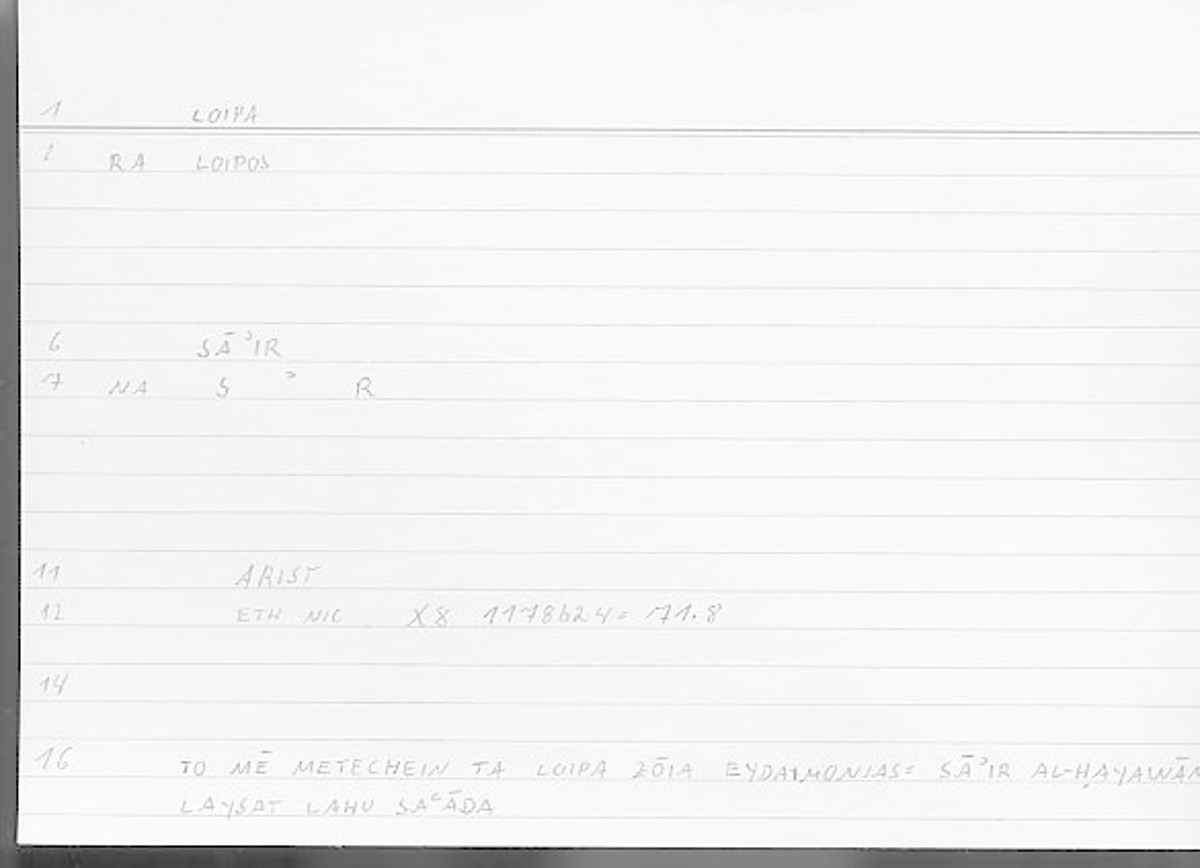 1 LOIPA
2 RA LOIPOS
6 SĀʾIR
7 NA S ʾ R
11 ARIST
12 ETH NIC X8 1178b24= 71.8
14
16 TO MĒ METECHEIN TA LOIPA ZŌIA EYDAIMONIAS= SĀʾIR AL-ḤAYAWĀN
LAYSAT LAHU SAʿĀDA